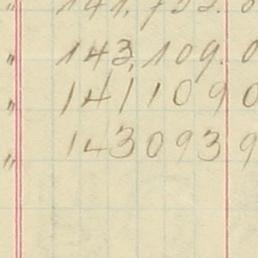 " 143,109.0
" 1411090
" 1430939